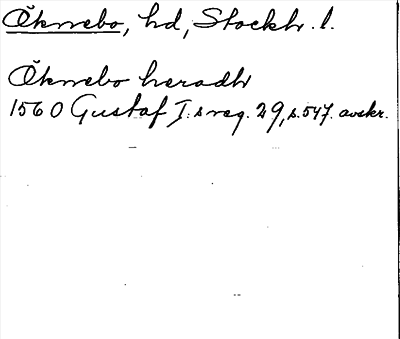 Öknebo, hd, Stockh. l.
Öknebo haradh
1560 Gustaf I:s reg. 29, s. 547. avskr.